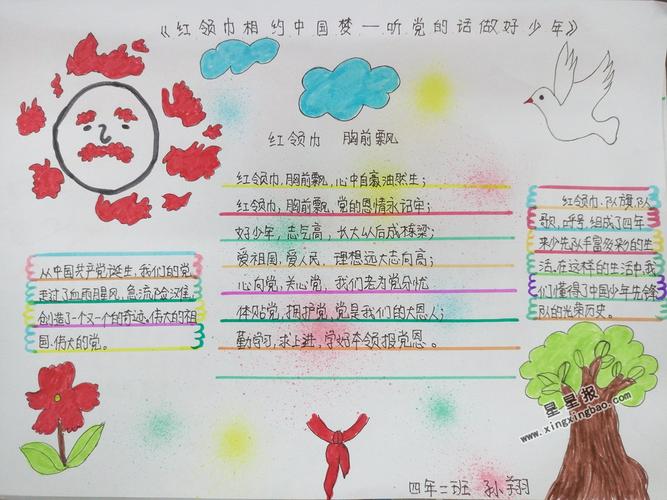 《红领巾相约中国梦一听党的话做好少年》
红领巾 胸前飘
红领巾,胸前飘,心中自豪油然生;
红领巾,胸前飘,党的恩情永记牢;
好少年,志气高,长大以后成栋梁;
爱祖国,爱人民,理想远大志向高;
心向党,关心党,我们老为党分忧
体贴党,拥护党,党是我们的大恩人;
勤学习,求上进,学好本领报党恩。
从中国共产党诞生,我们的党
走过了血雨腥风,急流险滩
创造了一个又一个的奇迹。伟大的祖
国,伟大的党。
红领巾、队旗、队
歌、呼号,组成了四年
来少先队丰富多彩的生
活,在这样的生活中,我
们懂得了中国少年先锋
队的光荣历史。
星星报
www.xingxingbao.com
四年二班 孙翔